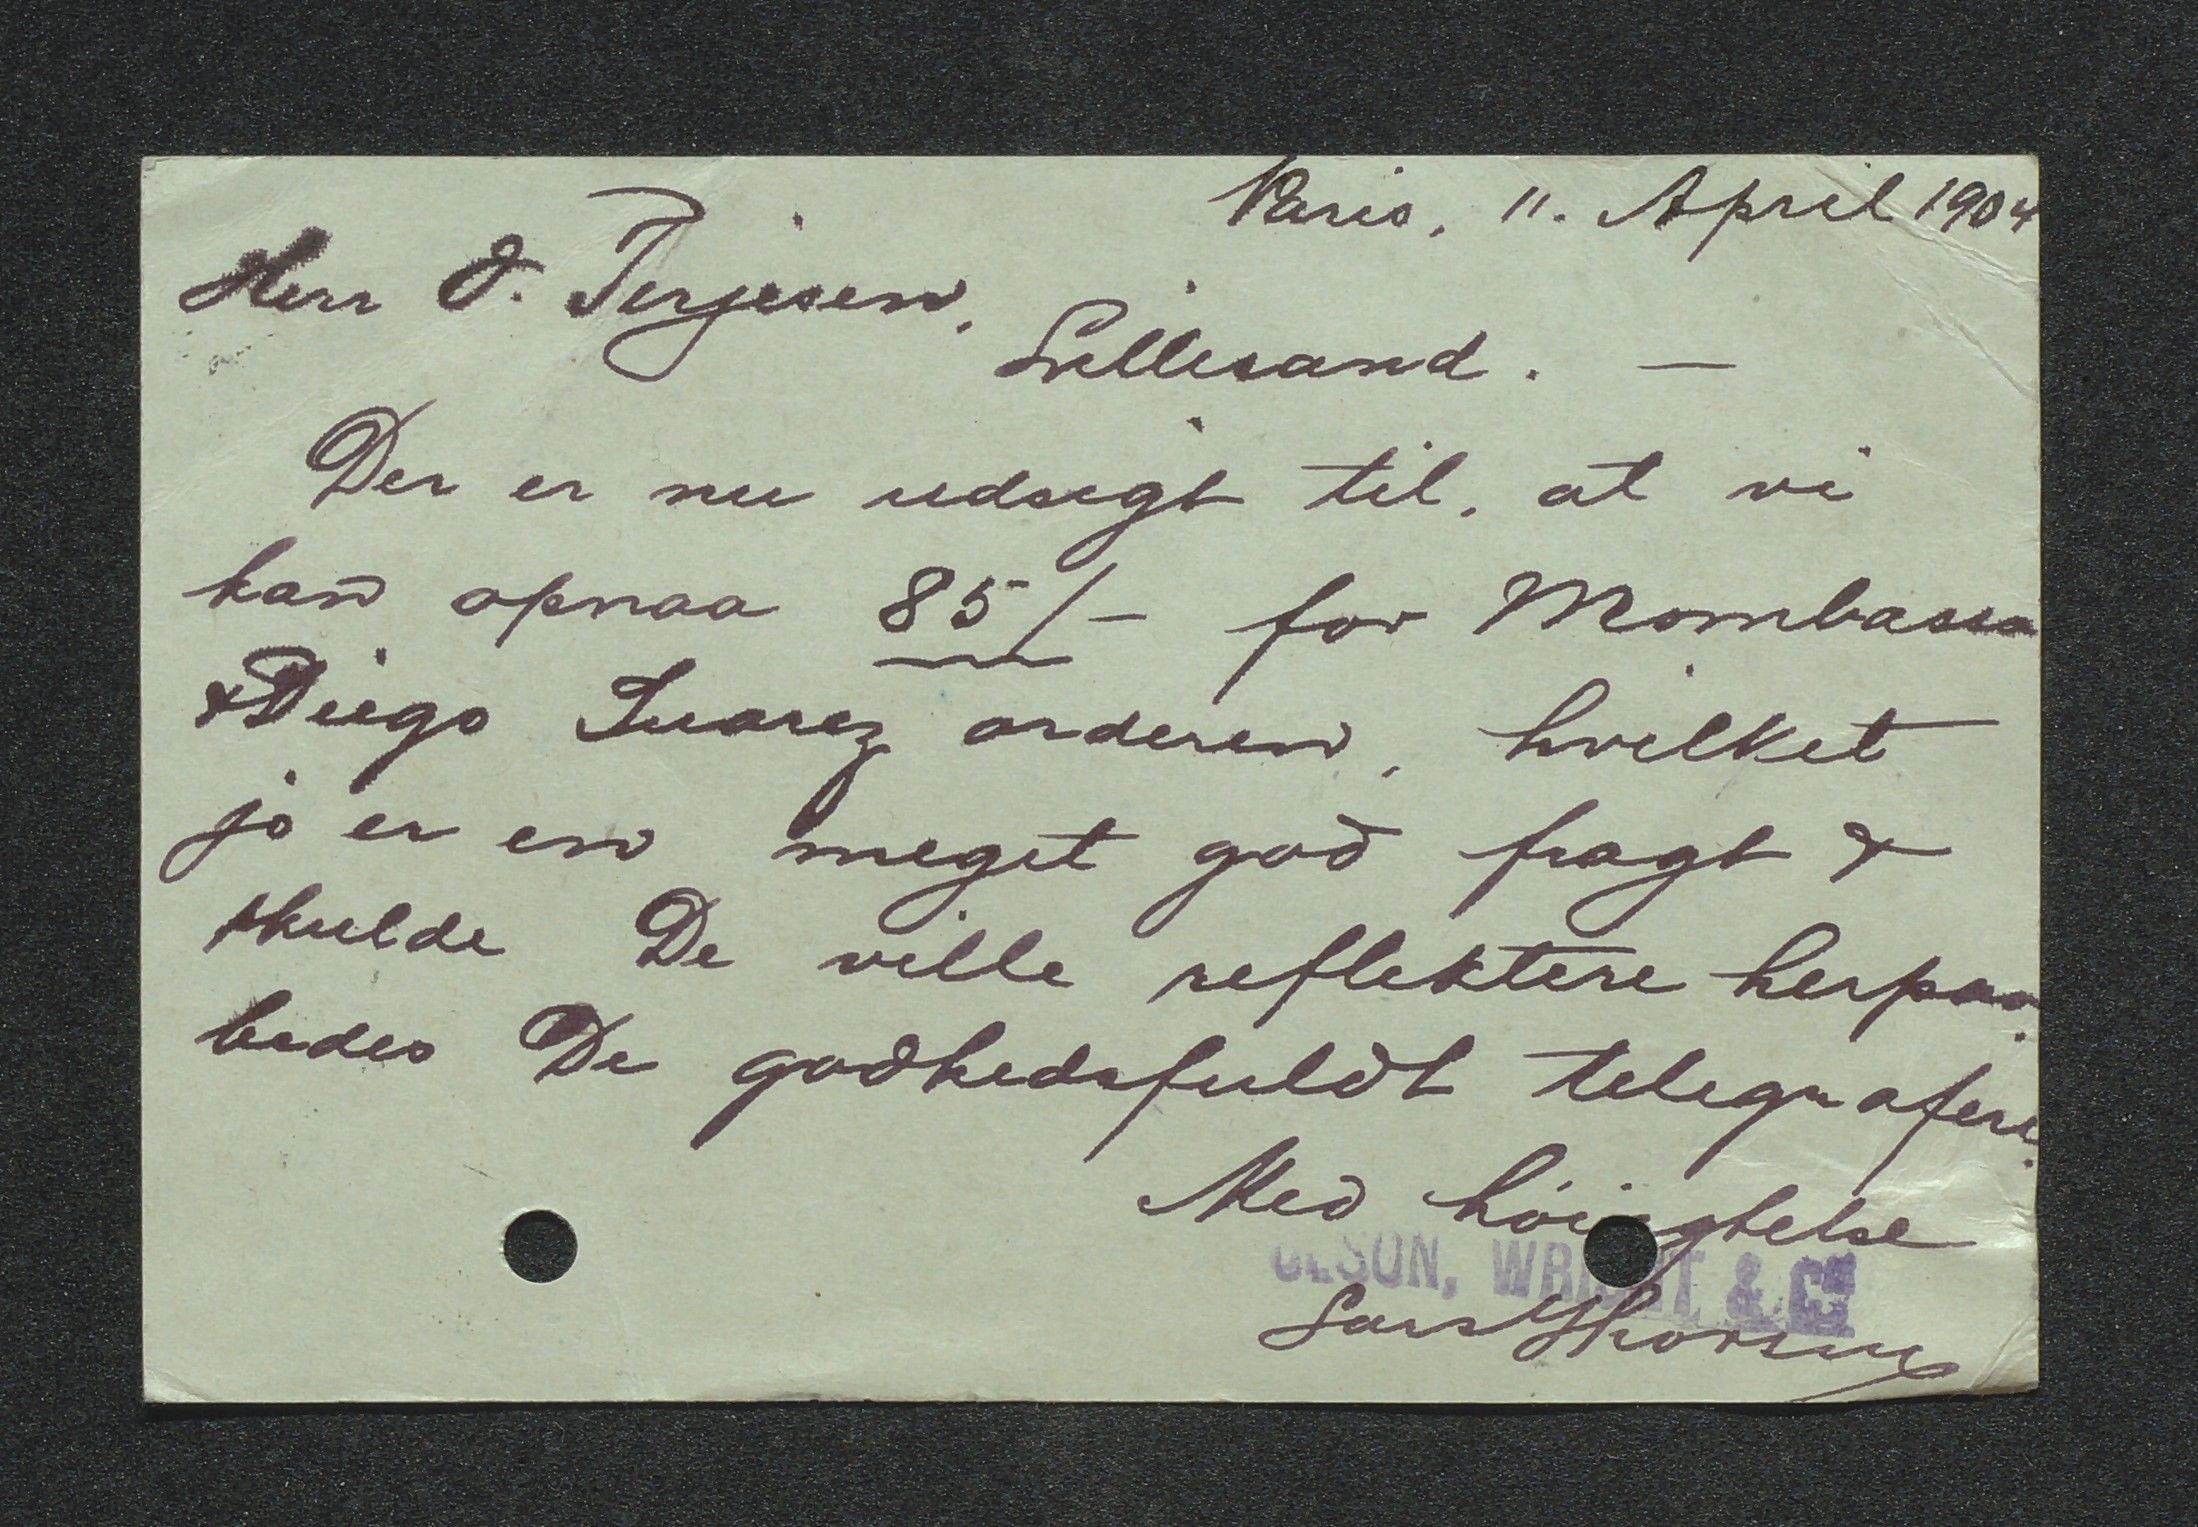 Paris, 11. April 1904
Herr O. Terjesen,
Lillesand. —
Der er nu udsigt til, at vi
kan opnaa 85/- for Mombassa
& Diego Suarez orderen, hvilket
jo er en meget god fragt &
skulde De ville reflektere herpaa,
bedes De godhedsfuldt telegrafere.
Med høiagtelse
OLSON, WRIGHT & Co